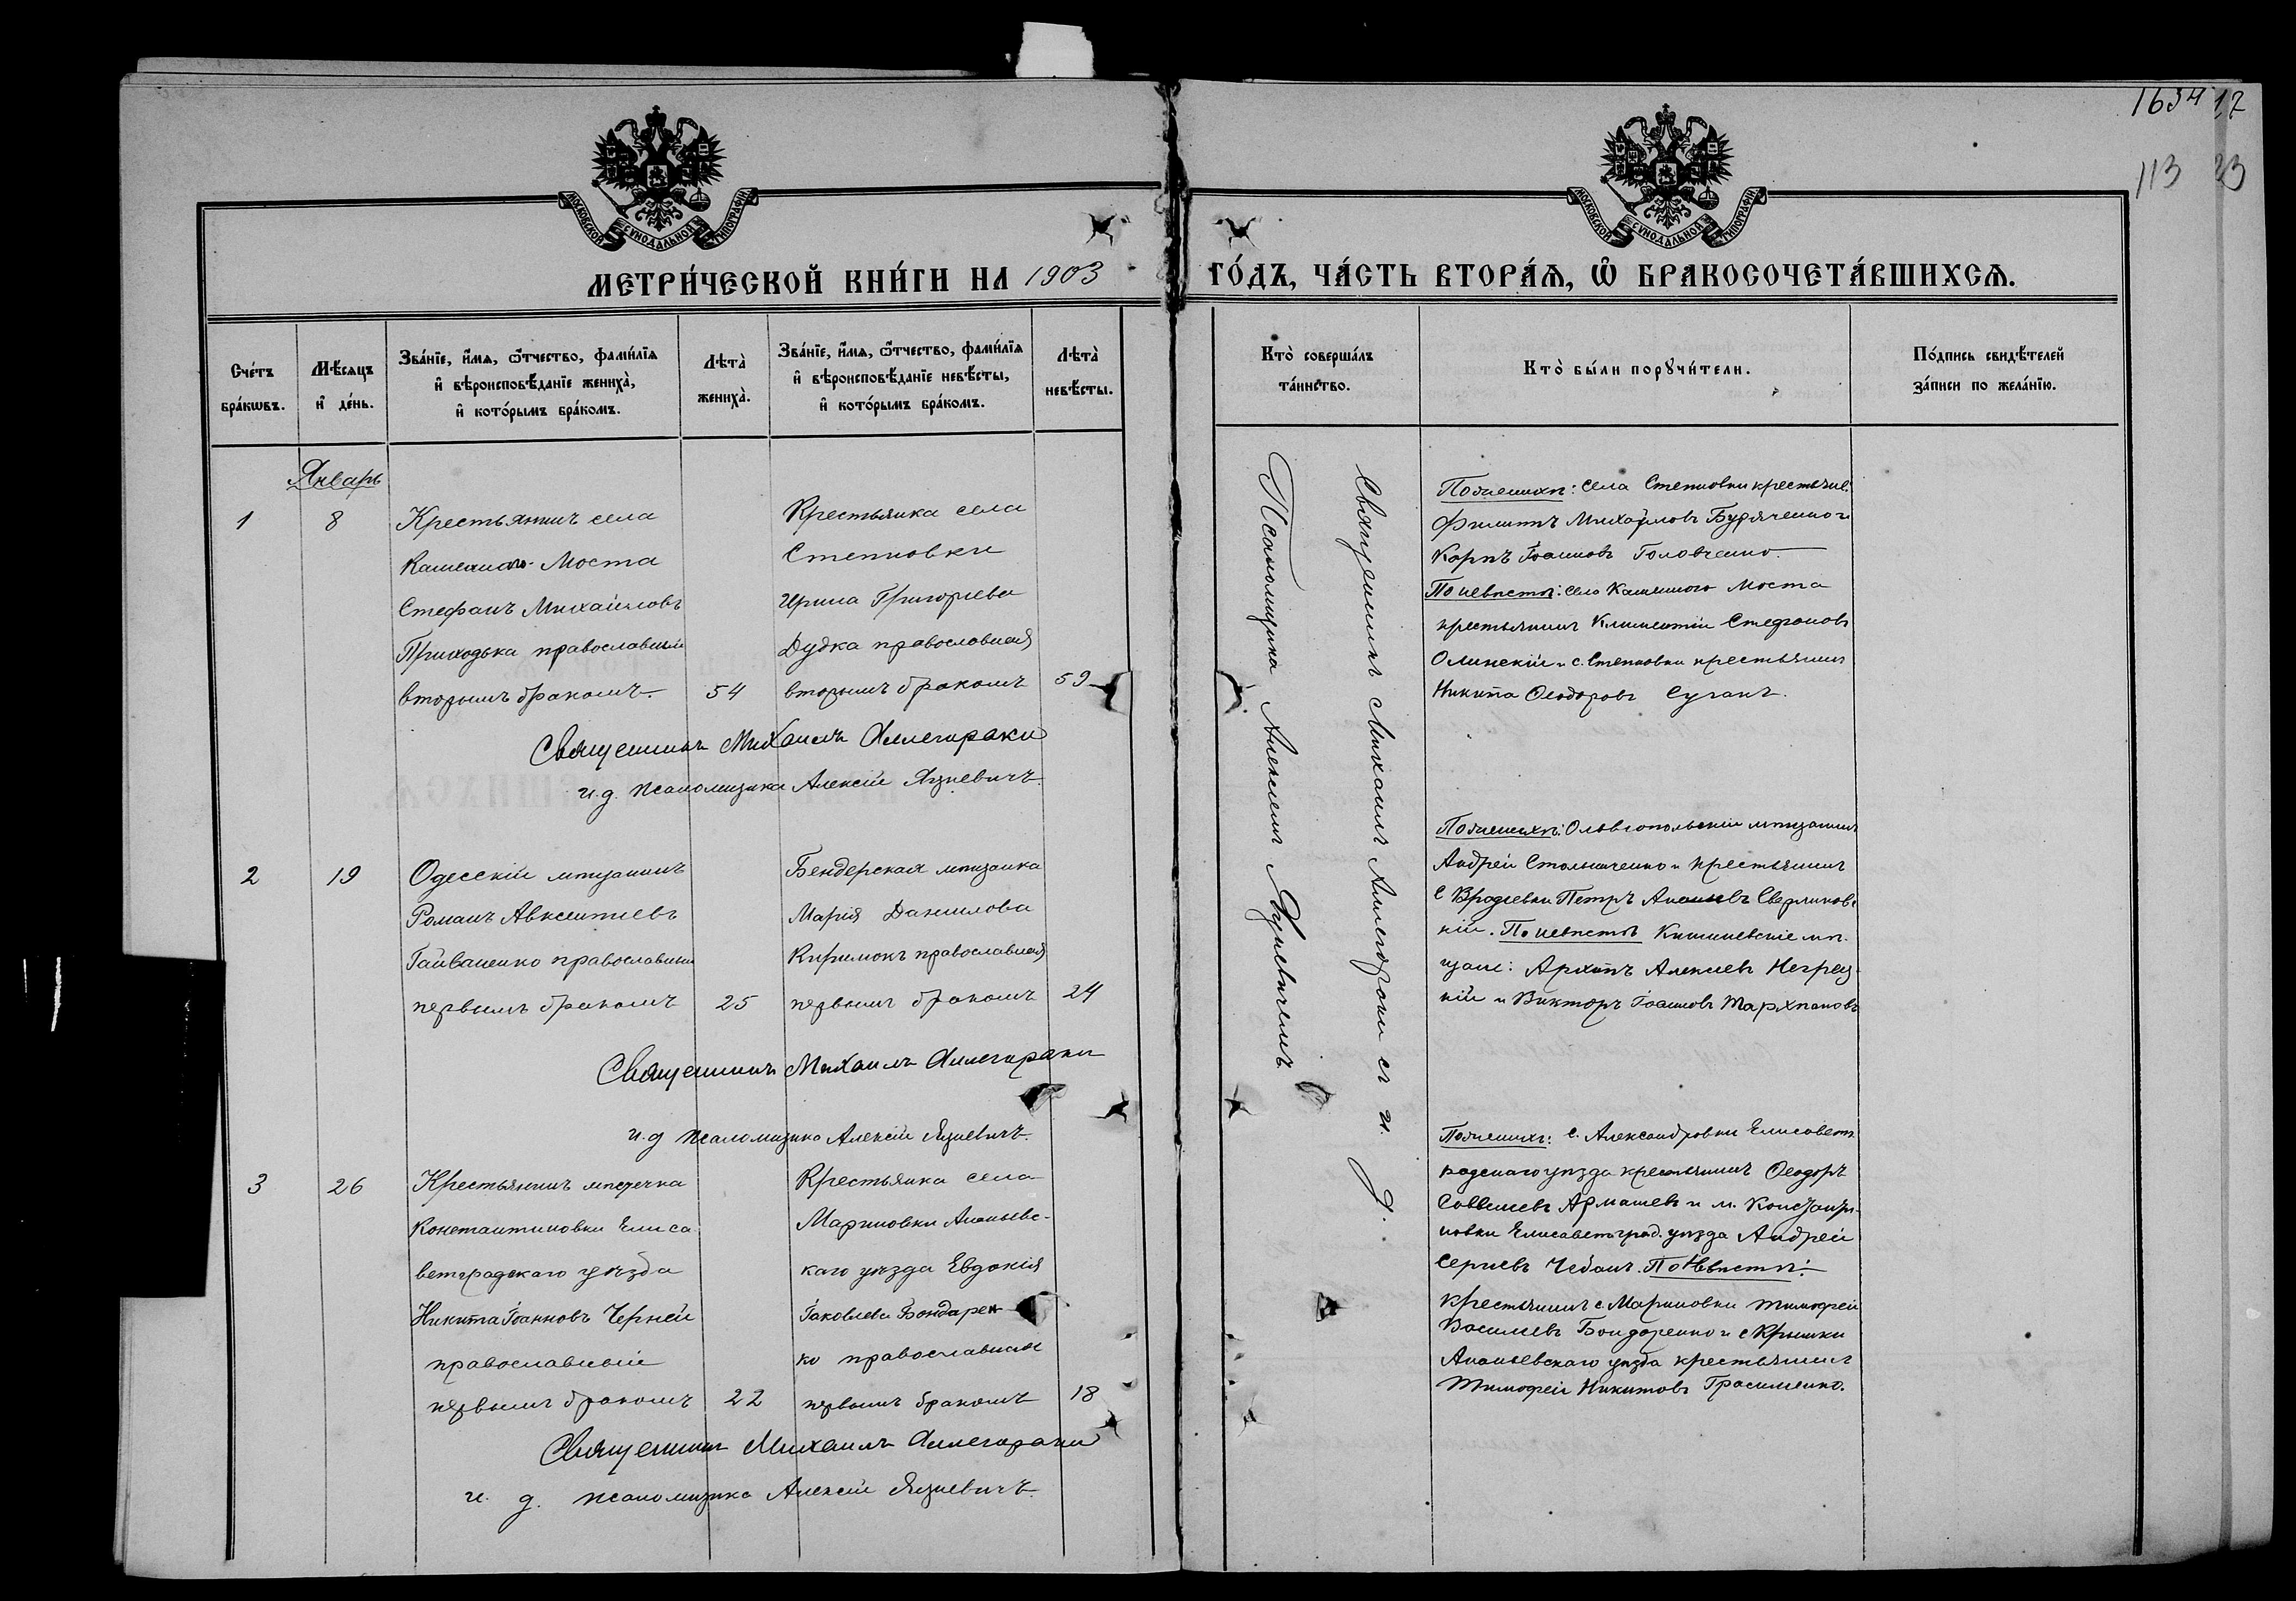 1634 12
113 23
МОСКОВСКОЙ СУНОДАЛЬНОЙ ТИПОГРАФІИ
МОСКОВСКОЙ СУНОДАЛЬНОЙ ТИПОГРАФІИ
МЕТРИ́ЧЕСКОЙ КНИ́ГИ НА 1903 ГО́ДЪ, ЧА́СТЬ ВТОРА́Я, Ѡ҆ БРАКОСОЧЕТА́ВШИХСЯ.
Сче́тъ бра́кѡвъ.
Мѣ́сяцъ и҆ де́нь.
Зва́нїе, и҆́мя, ѻ҆́тчество, фами́лїя
и҆ вѣроисповѣ́данїе жениха̀,
и҆ кото́рымъ бра́комъ.
Лѣта̀ жениха̀.
Зва́нїе, и҆́мя, ѻ҆́тчество, фами́лїя
и҆ вѣроисповѣ́данїе невѣ́сты,
и҆ кото́рымъ бра́комъ.
Лѣта̀ невѣ́сты.
Кто̀ соверша́лъ та́инство.
Кто̀ бы́ли порꙋчи́тели.
По́дпись свидѣ́телей за́писи по жела́нїю.
Январь
1
8
Крестьянинъ села
Каменнаго Моста
Стефанъ Михаиловъ
Приходька православный
вторымъ бракомъ.
54
Крестьянка села
Степковки
Ирина Григорьева
Дудка православная
вторымъ бракомъ
59
Священникъ Михаилъ Аллегораки
и.д. псаломщика Алексій Язневичъ.
2
19
Одесскій мѣщанинъ
Романъ Авксентіевъ
Гайваненко православный
первымъ бракомъ
25
Бендерская мѣщанка
Марія Данилова
Киримокъ православная
первымъ бракомъ
24
Священникъ Михаилъ Аллегораки
и.д псаломщика Алексій Язневичъ.
3
26
Крестьянинъ мѣстечка
Константиновки Елиса
ветградскаго уѣзда
Никита Іоанновъ Черней
православный
первымъ бракомъ
22
Крестьянка села
Мариновки Ананьевс-
каго уѣзда Евдокія
Іаковлева Бондарен
ко православная
первымъ бракомъ
18
Священникъ Михаилъ Аллегораки
и. д. псаломщика Алексій Язневичъ.
Священникъ Михаилъ Аллегораки съ и. д.
Псаломщика Алексіемъ Язневичемъ
По женихѣ: села Степковки крестьяне:
Филиппъ Михайловъ Бурдченко и
Карпъ Іоанновъ Головченко.
По невѣстѣ: села Каменнаго Моста
крестьянинъ Климентій Стефановъ
Олинскій и с. Степковки крестьянинъ
Никита Ѳеодоровъ Суганъ.
По женихѣ: Ольвіопольскій мѣщанинъ
Андрей Стольниченко и крестьянинъ
с Врадіевки Петръ Ананьевъ Сверликовс
кій. По невѣстѣ Кишиневскіе мѣ-
щане: Архипъ Алексіевъ Негрец-
кій и Викторъ Іоанновъ
По женихѣ: с. Александровки Елисавет
радскаго уѣзда крестьянинъ Ѳеодоръ
Савелиевъ Армашевъ и м. Константи-
новки Елисаветград. уѣзда Андрей
Сергіевъ Чебанъ. По невѣстѣ:
крестьянинъ с Мариновки Тимофей
Васильевъ Бондаренко и с Крымки
Ананьевскаго уѣзда крестьянинъ
Тимофей Никитовъ Грасименко.